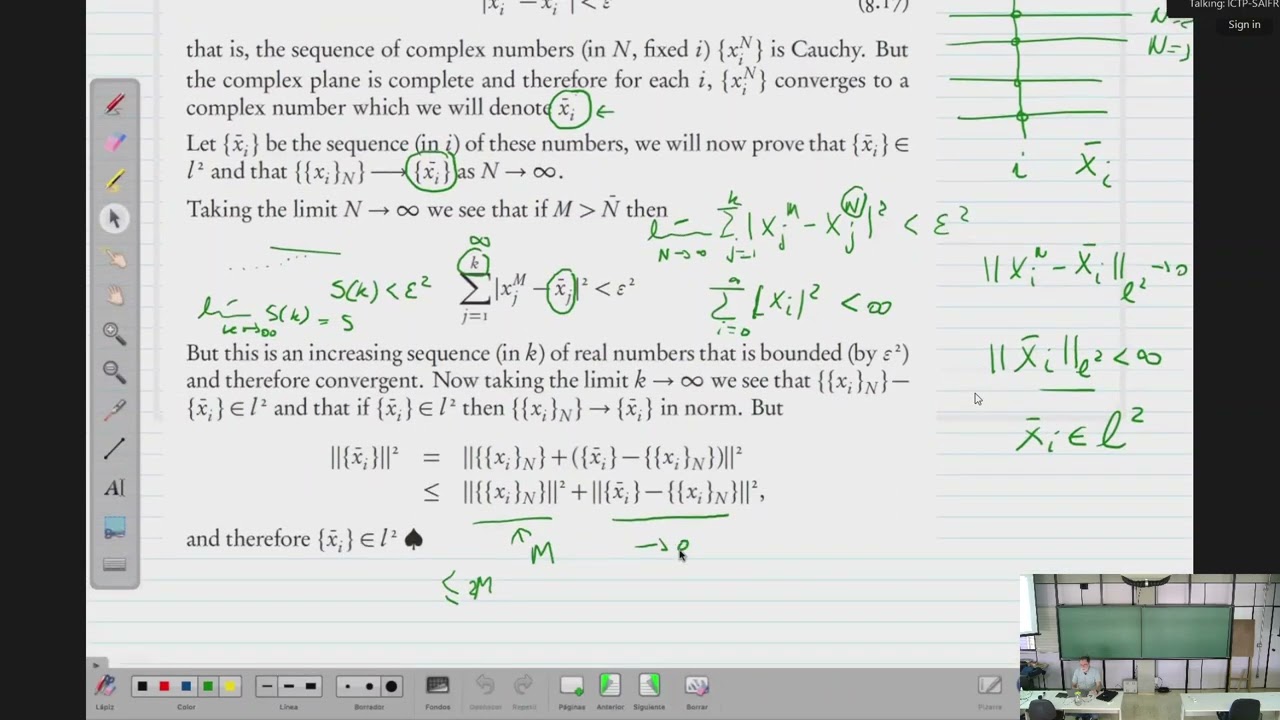 Talking: ICTP-SAIFR
Sign in
(8.17)
that is, the sequence of complex numbers (in N, fixed i) {x_i^N} is Cauchy. But
the complex plane is complete and therefore for each i, {x_i^N} converges to a
complex number which we will denote x̄_i ←
Let {x̄_i} be the sequence (in i) of these numbers, we will now prove that {x̄_i} ∈
l² and that {{x_i}_N} ⟶ {x̄_i} as N → ∞.
i x̄_i
Taking the limit N → ∞ we see that if M > N̄ then
lim N→∞ Σ_{j=1}^k |x_j^M − x_j^N|² < ε²
∞
Σ_{j=1}^k |x_j^M − x̄_j|² < ε²
S(k) < ε²
lim k→∞ S(k) = S
Σ_{i=0}^∞ |x_i|² < ∞
||x_i^N − x̄_i||_{l²} → 0
||x̄_i||_{l²} < ∞
x̄_i ∈ l²
But this is an increasing sequence (in k) of real numbers that is bounded (by ε²)
and therefore convergent. Now taking the limit k → ∞ we see that {{x_i}_N} −
{x̄_i} ∈ l² and that if {x̄_i} ∈ l² then {{x_i}_N} → {x̄_i} in norm. But
||{x̄_i}||² = ||{{x_i}_N} + ({x̄_i} − {{x_i}_N})||²
≤ ||{{x_i}_N}||² + ||{x̄_i} − {{x_i}_N}||²,
and therefore {x̄_i} ∈ l² ♠
↑ M → 0
≤ 2M
AI
Lápiz
Color
Línea
Borrador
Fondos
Deshacer
Repetir
Páginas
Anterior
Siguiente
Borrar
Pizarra